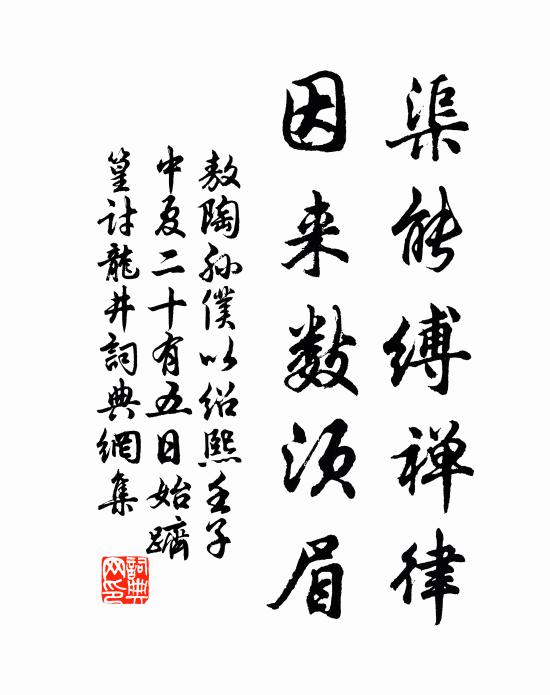 渠能缚禅律
因来数须眉
敖陶孙僕以绍熙壬子
中夏二十有五日始躋
篁讨龍井詞典網集
詞典网印